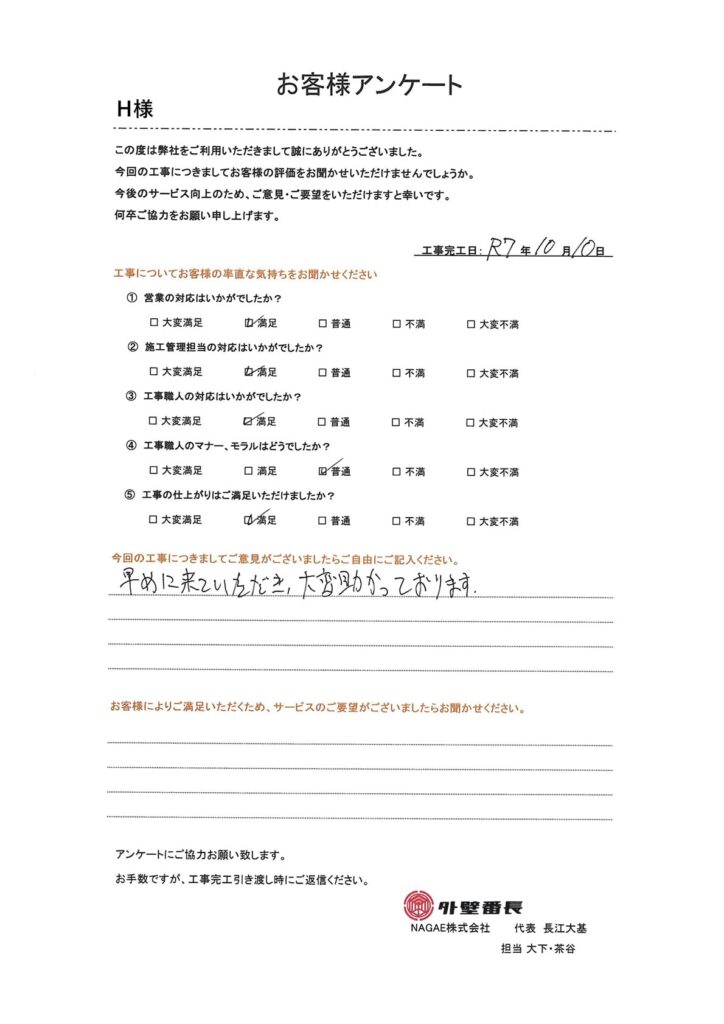 お客様アンケート
H様
この度は弊社をご利用いただきまして誠にありがとうございました。
今回の工事につきましてお客様の評価をお聞かせいただけませんでしょうか。
今後のサービス向上のため、ご意見・ご要望をいただけますと幸いです。
何卒ご協力をお願い申し上げます。
工事完工日: R7 年 10 月 10 日
工事についてお客様の率直な気持ちをお聞かせください
① 営業の対応はいかがでしたか？
□ 大変満足 ☑ 満足 □ 普通 □ 不満 □ 大変不満
② 施工管理担当の対応はいかがでしたか？
□ 大変満足 ☑ 満足 □ 普通 □ 不満 □ 大変不満
③ 工事職人の対応はいかがでしたか？
□ 大変満足 ☑ 満足 □ 普通 □ 不満 □ 大変不満
④ 工事職人のマナー、モラルはどうでしたか？
□ 大変満足 □ 満足 ☑ 普通 □ 不満 □ 大変不満
⑤ 工事の仕上がりはご満足いただけましたか？
□ 大変満足 ☑ 満足 □ 普通 □ 不満 □ 大変不満
今回の工事につきましてご意見がございましたらご自由にご記入ください。
早めに来ていただき、大変助かっております.
お客様によりご満足いただくため、サービスのご要望がございましたらお聞かせください。
アンケートにご協力お願い致します。
お手数ですが、工事完工引き渡し時にご返信ください。
外壁番長
NAGAE株式会社 代表 長江大基
担当 大下・茶谷